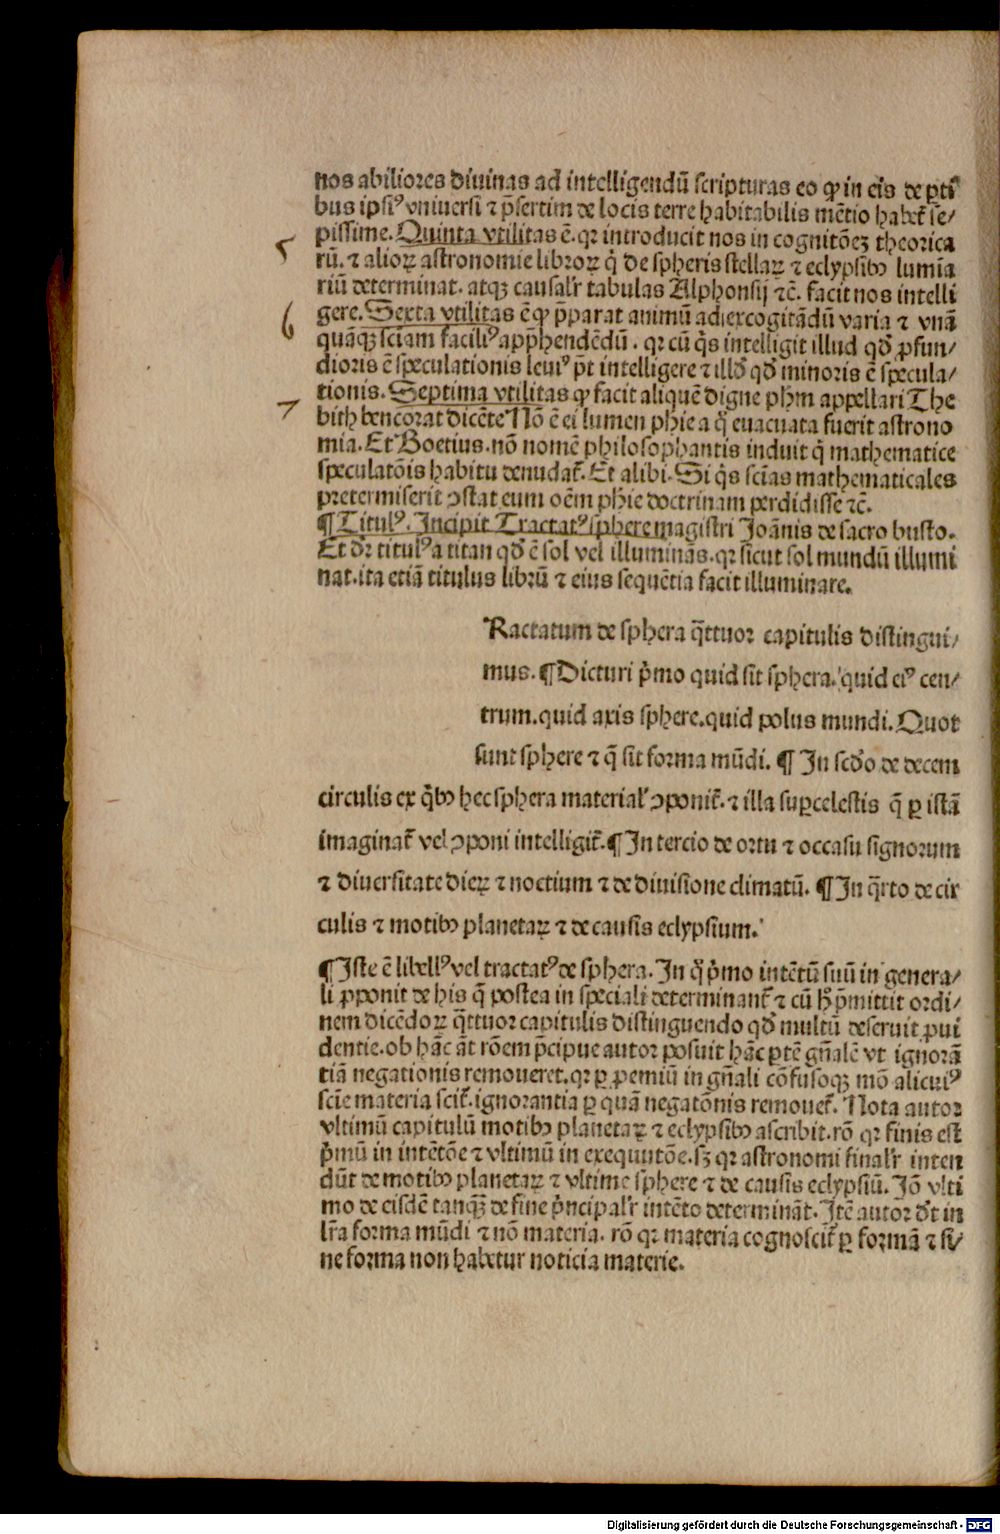 nos abiliores diuinas ad intelligendū scripturas eo ꝙ in eis de ꝑti
bus ipsiꝰ vniuersi ⁊ p̄sertim de locis terre habitabilis mētio habet̄ se/
pissime. Quinta vtilitas ē. qꝛ introducit nos in cognitōeꝫ theorica
5
rū. ⁊ alioꝝ astronomie libroꝝ q̇ de spheris stellaꝝ ⁊ eclypsibꝰ lumīa
riū determinat. atqꝫ causalr̄ tabulas Alphonsij ⁊c̄. facit nos intelli
gere. Sexta vtilitas ē ꝙ p̄parat animū ad excogitādū varia ⁊ vnā
6
quāqꝫ sciam faciliꝰ app̄hendēdū. qꝛ cū q̇s intelligit illud qd̄ ꝓfun/
dioris ē speculationis leuiꝰ pt̄ intelligere ⁊ illd̄ qd̄ minoris ē specula/
tionis. Septima vtilitas ꝙ facit aliquē digne phm̄ appellari The
7
bith bencorat dicēte Nō ē ei lumen phie a q̇ euacuata fuerit astrono
mia. Et Boetius. nō nomē philosophantis induit q̇ mathematice
speculatōis habitu denudat̄. Et alibi. Si q̇s scīas mathematicales
pretermiserit ꝯstat eum oēm phīe doctrinam perdidisse ⁊c̄.
¶ Titulꝰ. Incipit Tractatꝰ sphere magistri Joānis de sacro busto.
Et dr̄ titulꝰ a titan qd̄ ē sol vel illuminās. qꝛ sicut sol mundū illumi
nat. ita etiā titulus librū ⁊ eius sequētia facit illuminare.
Ractatum de sphera q̄ttuor capitulis distingui/
mus. ¶ Dicturi ṗmo quid sit sphera. quid eiꝰ cen/
trum. quid axis sphere. quid polus mundi. Quot
sunt sphere ⁊ q̄ sit forma mūdi. ¶ In scd̄o de decem
circulis ex q̇bꝰ hec sphera materialꝭ ꝯponit̄. ⁊ illa suꝑcelestis q̄ ꝑ istā
imaginat̄ vel ꝯponi intelligit̄. ¶ In tercio de ortu ⁊ occasu signorum
⁊ diuersitate dieꝝ ⁊ noctium ⁊ de diuisione climatū. ¶ In q̄rto de cir
culis ⁊ motibꝰ planetaꝝ ⁊ de causis eclypsium.
¶ Iste ē libellꝰ vel tractatꝰ de sphera. In q̇ ṗmo intētū suū in genera/
li ꝓponit de his q̄ postea in speciali determinant̄ ⁊ cū hͦ p̄mittit ordi/
nem dicēdoꝝ q̄ttuor capitulis distinguendo qd̄ multū deseruit ꝓui
dentie. ob hāc āt rōem p̄cipue autor posuit hāc ꝑtē gn̄alē vt ignorā
tiā negationis remoueret. qꝛ ꝑ ꝓemiū in gn̄ali cōfusoqꝫ mō alicuiꝰ
scīe materia scit̄. ignorantia ꝑ quā negatōnis remouet̄. Nota autor
vltimū capitulū motibꝰ planetaꝝ ⁊ eclypsibꝰ ascribit. rō qꝛ finis est
ṗmū in intētōe ⁊ vltimū in exequutōe. sꝫ qꝛ astronomi finalr̄ inten
dūt de motibꝰ planetaꝝ ⁊ vltime sphere ⁊ de causis eclypsiū. Jō vlti
mo de eisdē tanqꝫ̄ de fine ṗncipalr̄ intēto determināt. Itē autor d̄t in
lr̄a forma mūdi ⁊ nō materia. rō qꝛ materia cognoscit̄ ꝑ formā ⁊ si/
ne forma non habetur noticia materie.
Digitalisierung gefördert durch die Deutsche Forschungsgemeinschaft - DFG